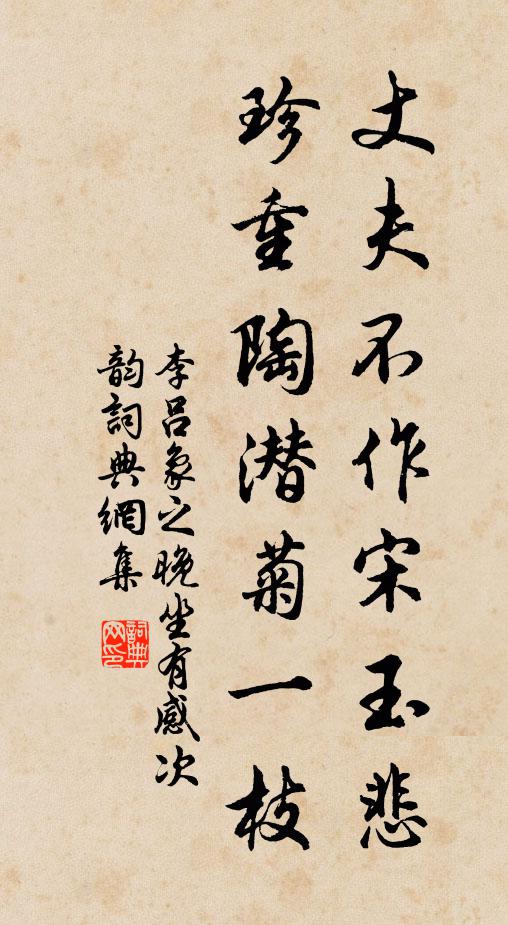 丈夫不作宋玉悲
珍重陶潜菊一枝
李吕象之晚坐有感次
韵詞典網集
詞典
网印